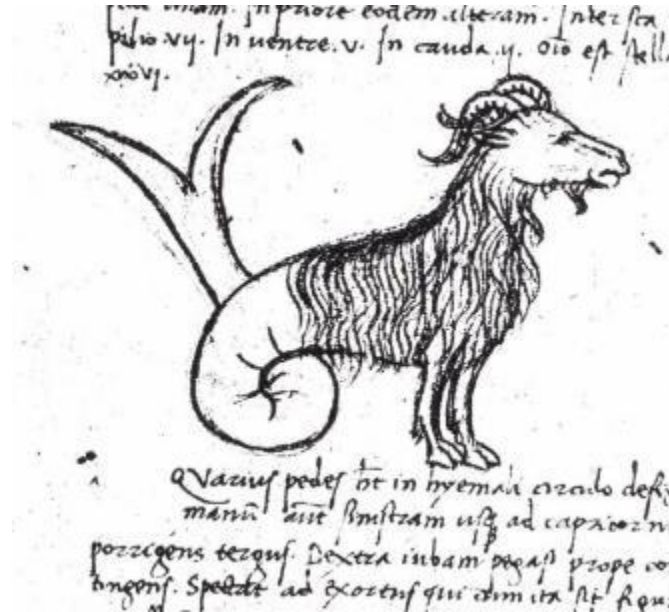 unam. In priore eodem alteram. Inter sca
pilio .vii. In ventre .v. In cauda .ij. Oio est stella
xxvi.
QVarius pedes ht in hyemali circulo defi
manũ aũt sinistram usq ad capricorni
porrigens tergus. Dextra iubam pegasi prope co
tingens. Spectat ad exortus qui cum ita sit figu